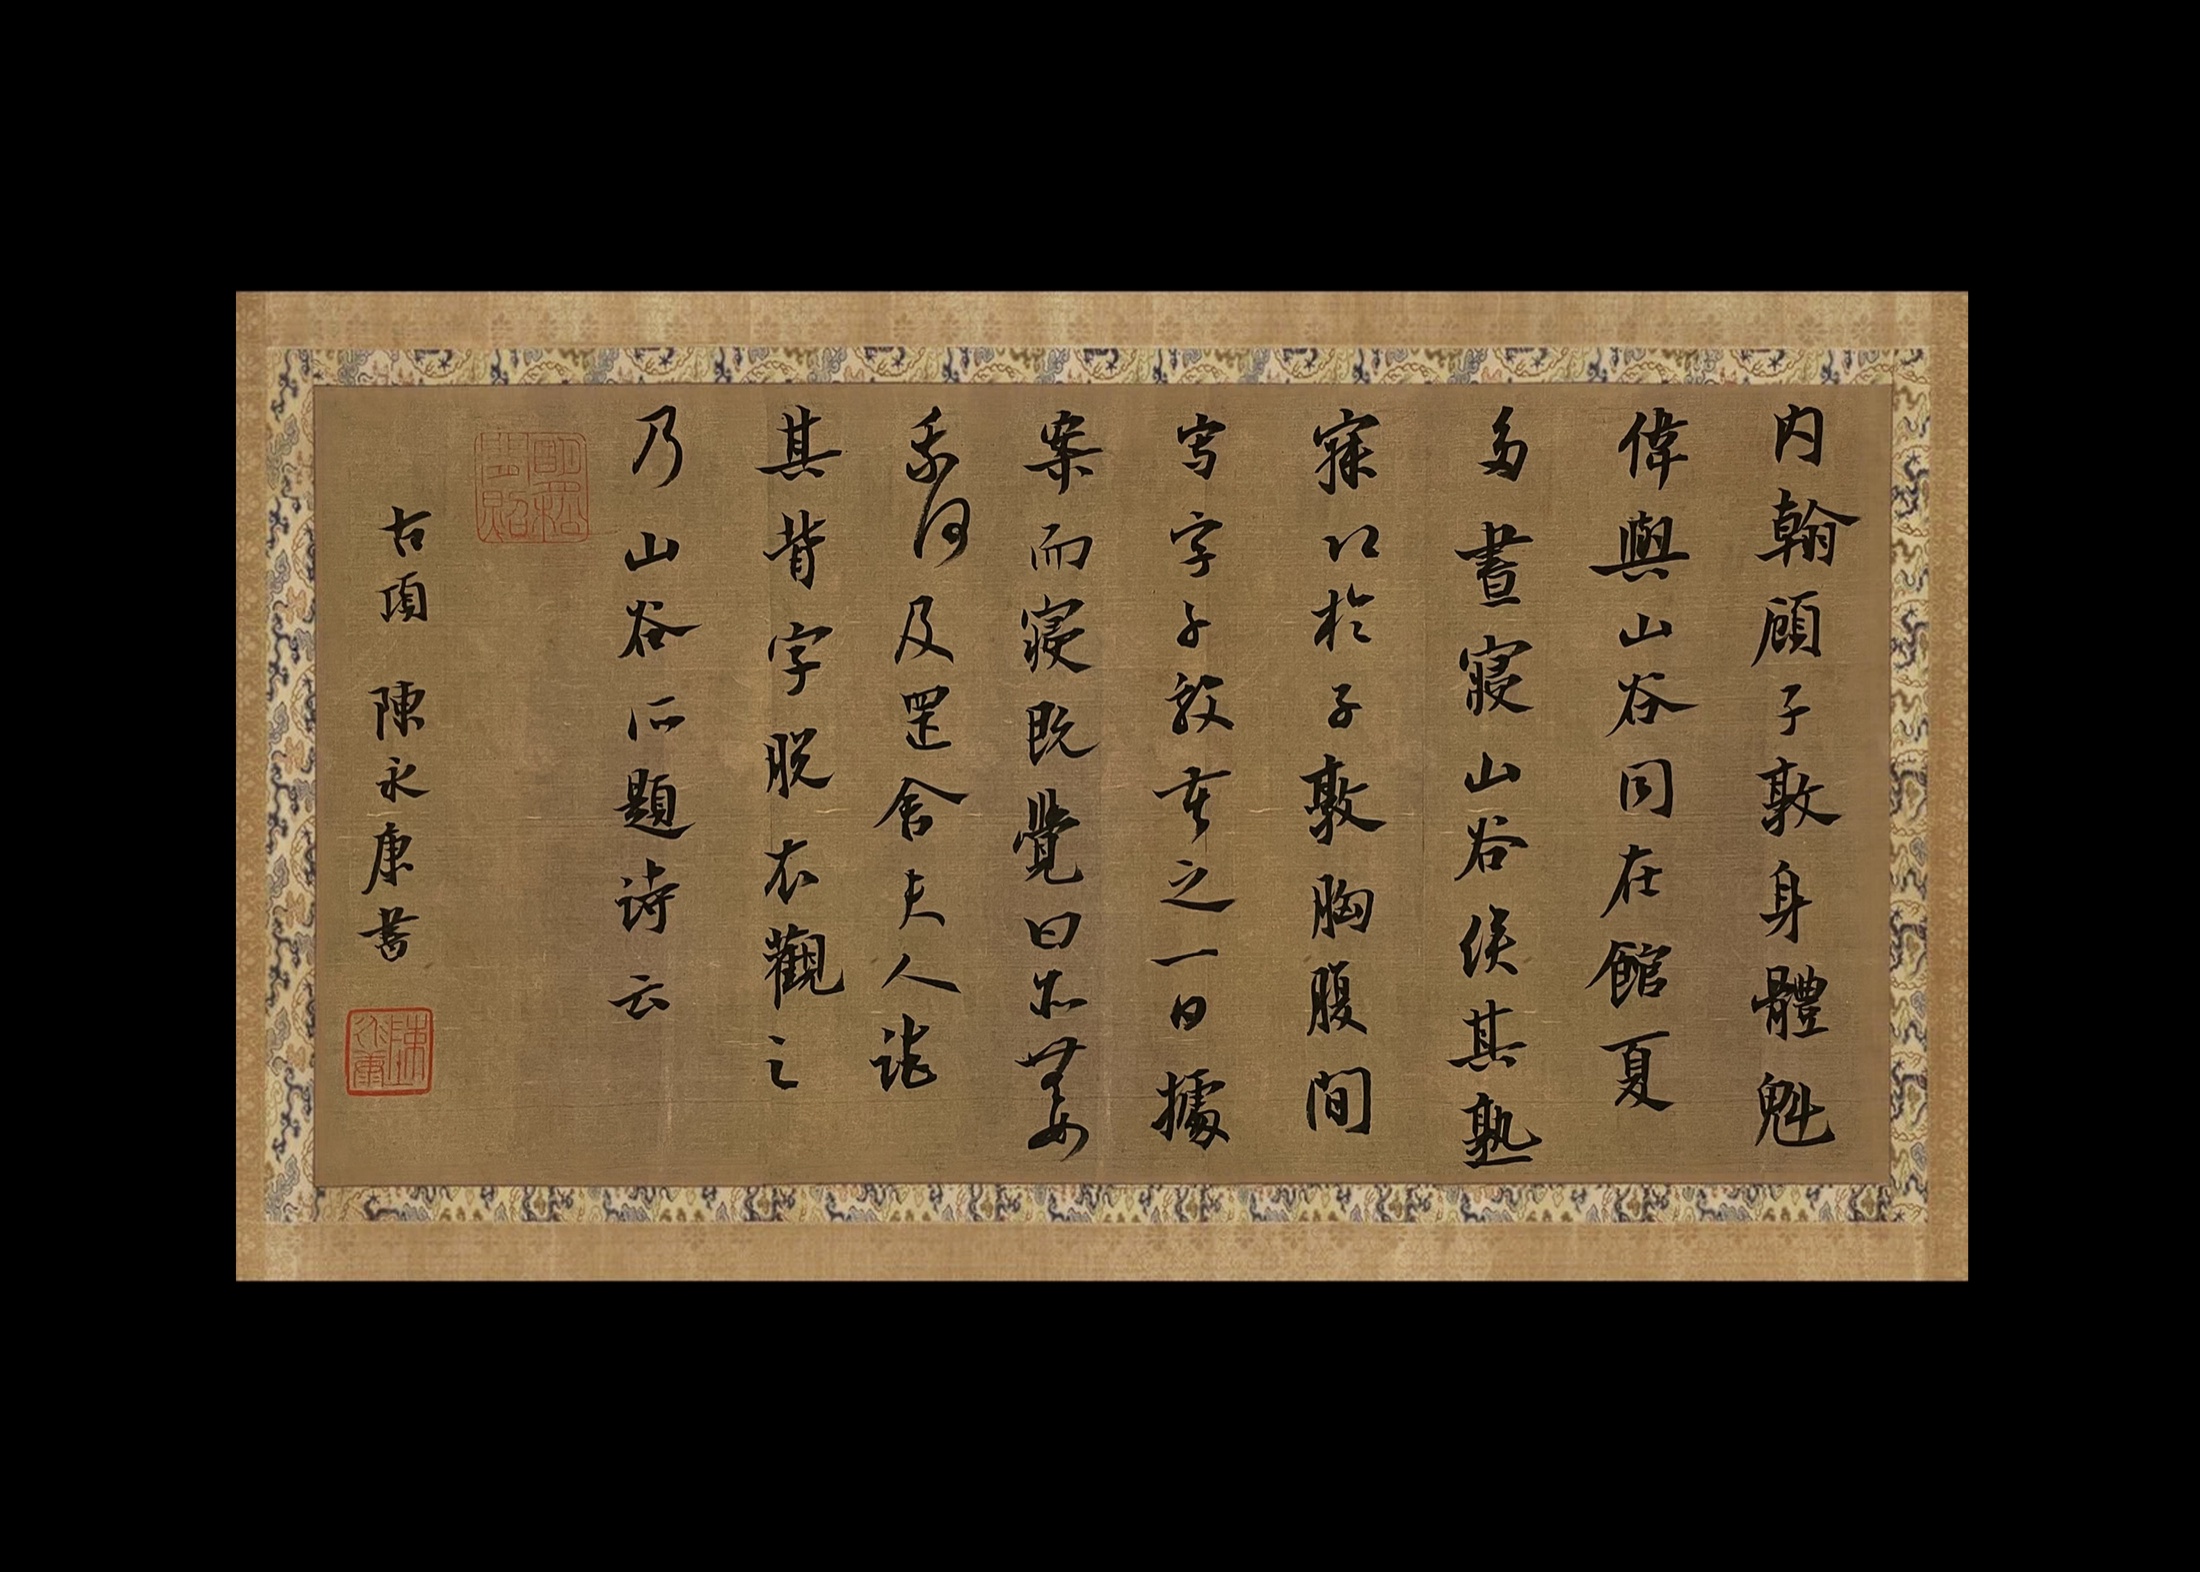 内翰顧子敦身體魁
偉與山谷同在館夏
多晝寢山谷俟其熟
寐即於子敦胸腹間
寫字子敦苦之一日據
案而寢既覺曰無如
我何及還舍夫人詫
其背字脫衣觀之
乃山谷所題詩云
古項 陳永康書
陳永康